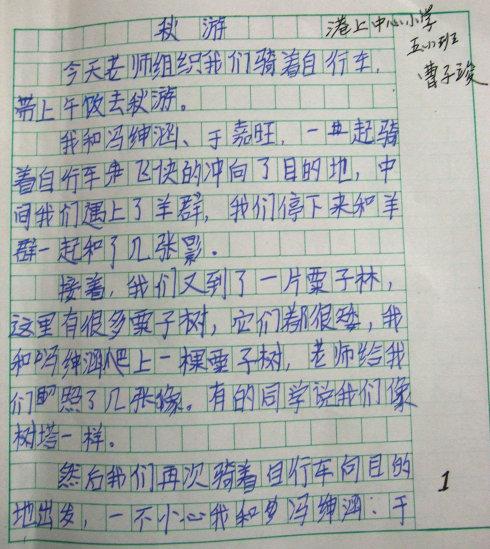 秋游
港上中心小学
五(1)班
曹子骏
今天老师组织我们骑着自行车,
带上午饭去秋游。
我和冯绅涵、于嘉旺,一起骑
着自行车飞快的冲向了目的地,中
间我们遇上了羊群,我们停下来和羊
群一起和了几张影。
接着,我们又到了一片栗子林,
这里有很多栗子树,它们都很矮,我
和冯绅涵爬上一棵栗子树,老师给我
们照了几张像。有的同学说我们像
树塔一样。
然后我们再次骑着自行车向目的
地出发,一不小心我和冯绅涵、于
1